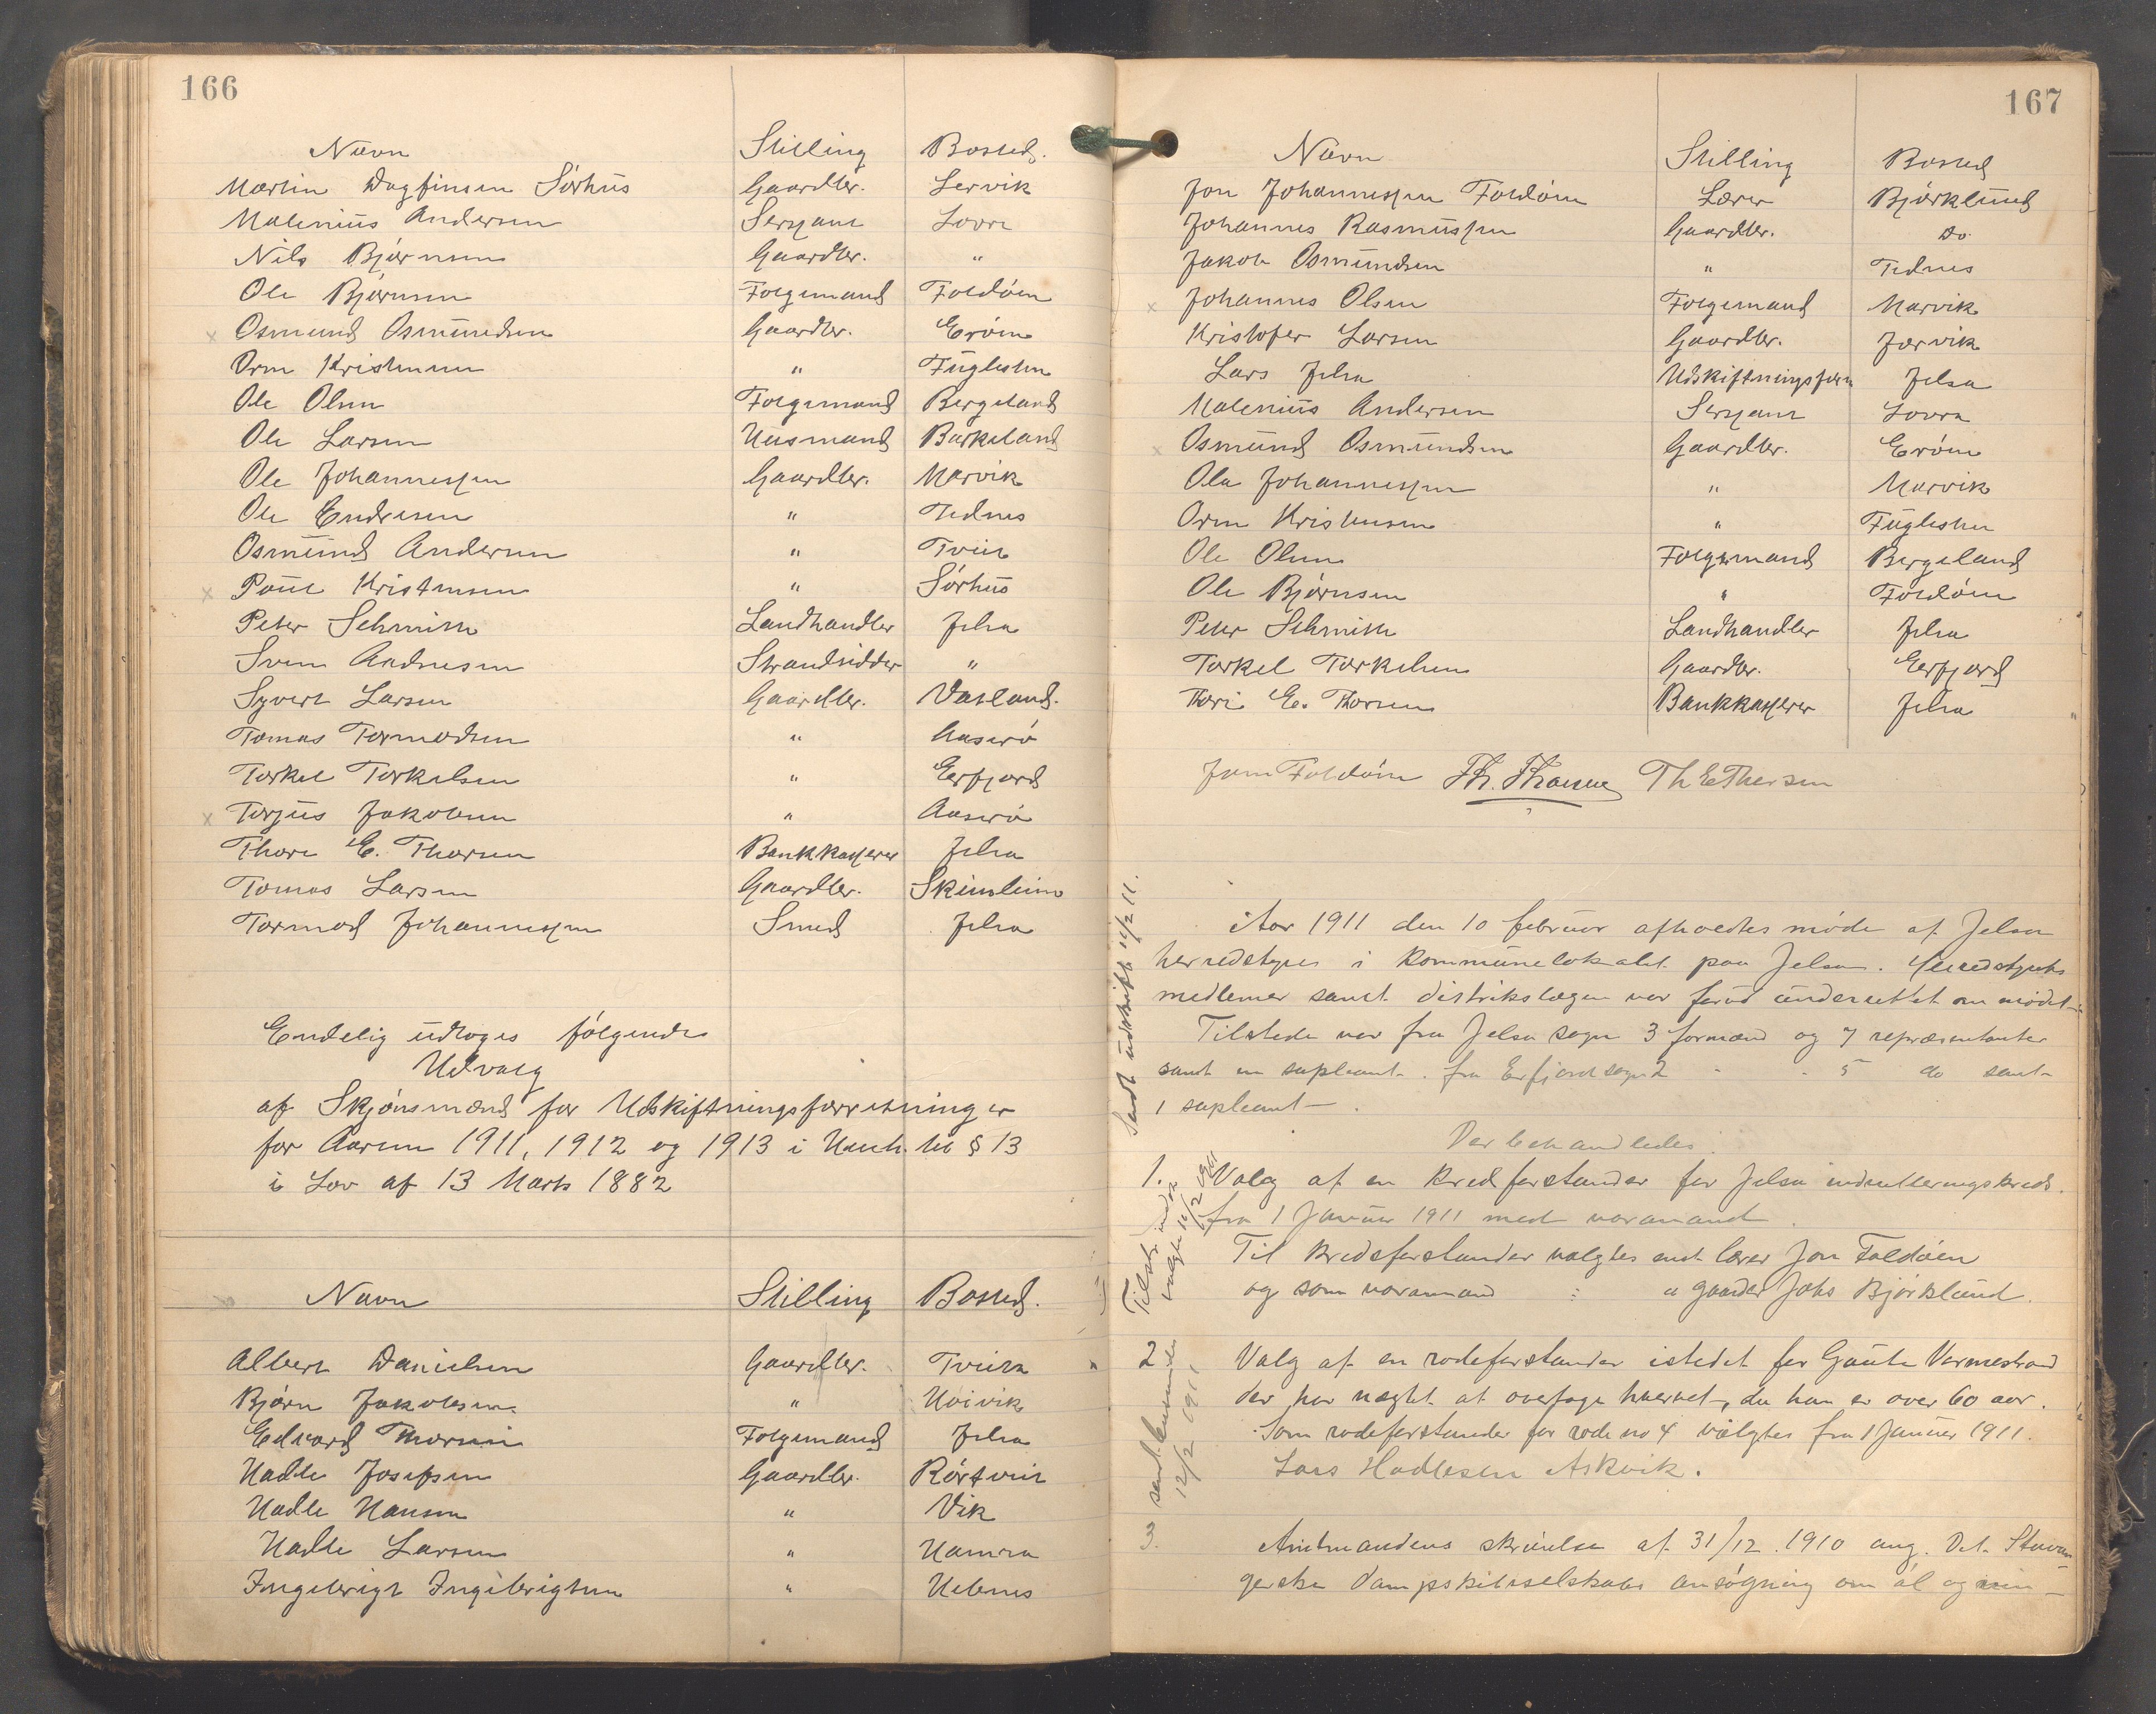 166
Navn Stilling Bosted.
Martin Dagfinsen Sørhus Gaardbr. Lervik
Malenius Andersen Sersjant Lovra
Nils Bjørnsen Gaardbr. "
Ole Bjørnsen Folgemand Foldøen
x Osmund Osmundsen Gaardbr. Erøen
Orm Kristensen " Fuglesten
Ole Olsen Folgemand Bergeland
Ole Larsen Husmand Barkeland
Ole Johannessen Gaardbr. Marvik
Ole Endresen " Tednes
Osmund Andersen " Tveit
x Poul Kristensen " Sørhus
Peter Schmith Landhandler Jelsa
Sven Andresen Strandsidder "
Syvert Larsen Gaardbr. Vasland.
Tomas Tormodsen " Aaserø
Torkel Torkelsen " Eerfjord
x Torjus Jakobsen " Aaserø
Thore E. Thorsen Bankkasserer Jelsa
Tomas Larsen Gaardbr. Skimleim
Tormod Johannessen Smed Jelsa
Endelig udtoges følgende
Udvalg
af Skjønsmænd for Udskiftningsforretninger
for Aarene 1911, 1912 og 1913 i Henh. til § 13
i Lov af 13 Marts 1882
Navn Stilling Bosted.
Albert Danielsen Gaardbr. Tveita
Bjørn Jakobsen " Hoivik
Edvard Thorsen Folgemand Jelsa
Hadle Josefsen Gaardbr. Rørtveit
Hadle Hansen " Vik
Hadle Larsen " Hamra
Ingebrigt Ingebrigtsen " Hebnes
167
Navn Stilling Bosted
Jon Johannessen Foldøen Lærer Bjørklund
Johannes Rasmussen Gaardbr. Do
Jakob Osmundsen " Tednes
x Johannes Olsen Folgemand Marvik
Kristofer Larsen Gaardbr. Jorvik
Lars Jelsa Udskiftningsform Jelsa
Malenius Andersen Sersjant Lovra
x Osmund Osmundsen Gaardbr. Erøen
Ola Johannessen " Marvik
Orm Kristensen " Fuglesten
Ole Olsen Folgemand Bergeland
Ole Bjørnsen " Foldøen
Peter Schmith Landhandler Jelsa
Torkel Torkelsen Gaardbr. Eerfjord
Thore E. Thorsen Bankkasserer Jelsa
Jon Foldøen Th. Th E Thorsen
Sendt udskrift 11/2 11.
Aar 1911 den 10 februar afholdtes møde af Jelsa
herredstyre i kommunelokalet paa Jelsa. Herredstyrets
medlemer samt distriktslægen var forud underrettet om mødet.
Tilstede var fra Jelsa sogn 3 formænd og 7 repræsentanter
samt en supleant. fra Erfjord sogn 2 " " 5 do samt
1 supleant.
Der behandledes.
1. Valg af en kredsforstander for Jelsa indrulleringskreds.
fra 1 Januar 1911 med varamand.
Til kredsforstander valgtes enst lærer Jon Foldøen
og som varamand : " gaardbr Johs Bjørklund.
valgte 11/2 1911
2 Valg af en rodeforstander istedet for Gaute Varmestrand
der har nægtet at overtage hvervet, da han er over 60 aar.
Som rodeforstander for rode no 4 valgtes fra 1 Januar 1911.
Lars Hadlesen Askvik.
12/2 1911
3. Amtmandens skrivelse af 31/12. 1910 ang. Det Stavan
gerske Dampskibsselskabs ansøgning om øl og vin-